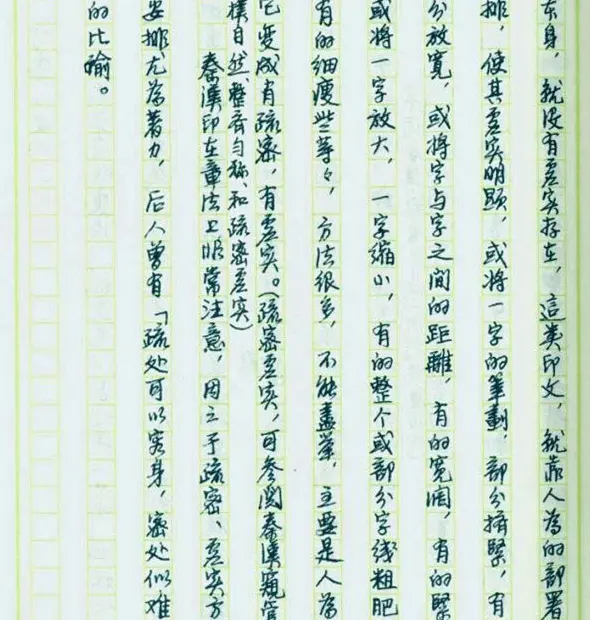 本身，就沒有虛实存在，這类印文，就靠人為的部署
排，使其虛实明顯，或将一字的筆劃，部分擠緊，有
分放宽，或将字与字之间的距離，有的宽阔，有的緊
或将一字放大，一字缩小，有的整个或部分字线粗肥
有的细瘦些等々，方法很多，不能盡举，主要是人為
它变成有疏密，有虛实。（疏密虛实，可参阅秦漢窺管
樸自然、整齐匀称、和疏密虛实）
秦漢印在章法上非常注意，用之于疏密、虛实方
安排尤為着力，后人曾有「疏处可以容身，密处似难
的比喻。